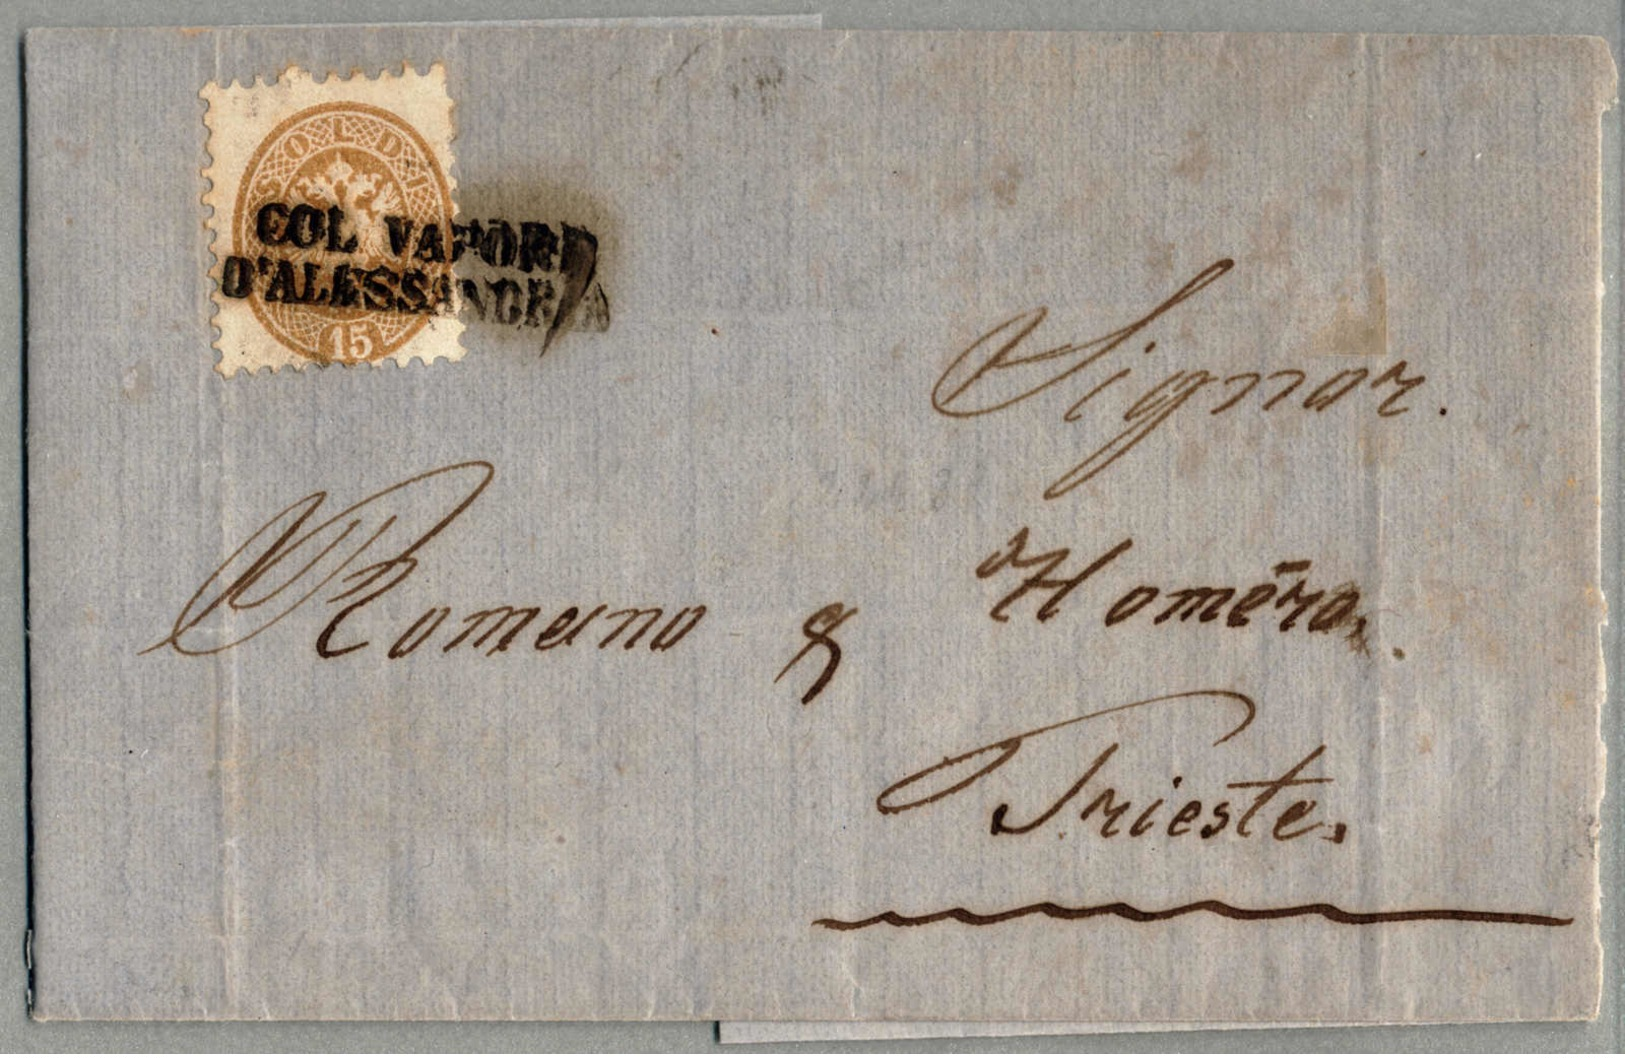 SOLDI
COL VAPORE
D'ALESSANDRIA
15
Signor.
Romano & Homēro.
Trieste.